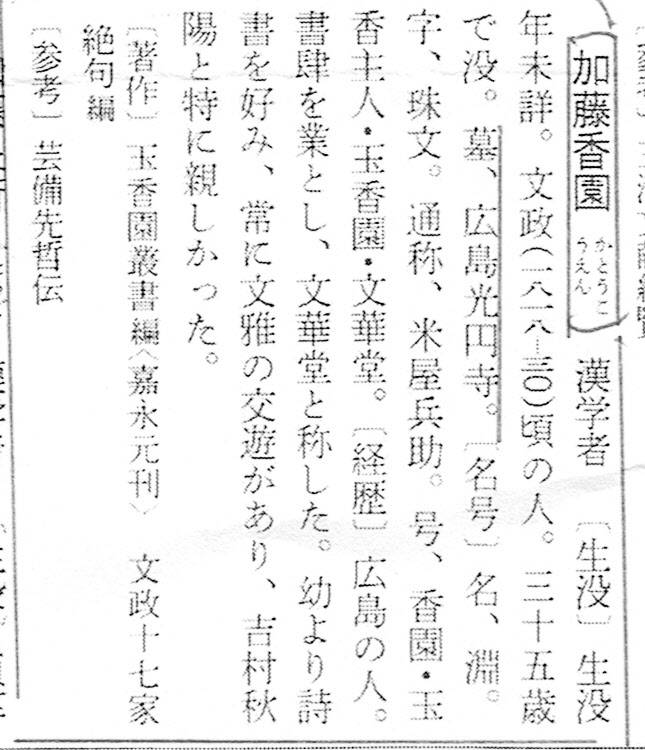 加藤香園 かとうこうえん 漢学者 〔生没〕 生没
年未詳。文政(一八一八―三〇)頃の人。三十五歳
で没。墓、広島光円寺。〔名号〕名、淵。
字、珠文。通称、米屋兵助。号、香園・玉
香主人・玉香園・文華堂。〔経歴〕広島の人。
書肆を業とし、文華堂と称した。幼より詩
書を好み、常に文雅の交遊があり、吉村秋
陽と特に親しかった。
〔著作〕 玉香園叢書編〈嘉永元刊〉 文政十七家
絶句編
〔参考〕 芸備先哲伝